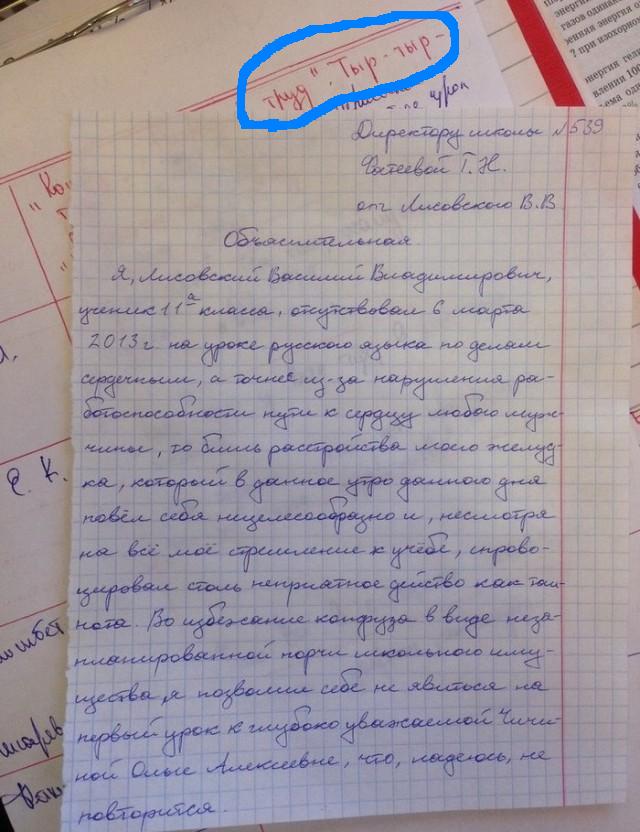 труд" "Тыр-тыр-
урок
Директору школы №539
Фатеевой Г.Н.
от Лисовского В.В
Объяснительная
Я, Лисовский Василий Владимирович,
ученик 11 а класса, отсутствовал 6 марта
2013г. на уроке русского языка по делам
сердечным, а точнее из-за нарушения ра-
ботоспособности пути к сердцу любого муж-
чины, то бишь расстройства моего желуд-
ка, который в данное утро данного дня
повёл себя нецелесообразно и, несмотря
на всё моё стремление к учёбе, спрово-
цировал столь неприятное действо как тош-
нота. Во избежание конфуза в виде неза-
планированной порчи школьного иму-
щества, я позволил себе не явиться на
первый урок к глубоко уважаемой Чичи-
ной Ольге Алексеевне, что, надеюсь, не
повторится.
"Ко
Е. К.
энергия
газов одинаков
? при изохорно
энергия гели